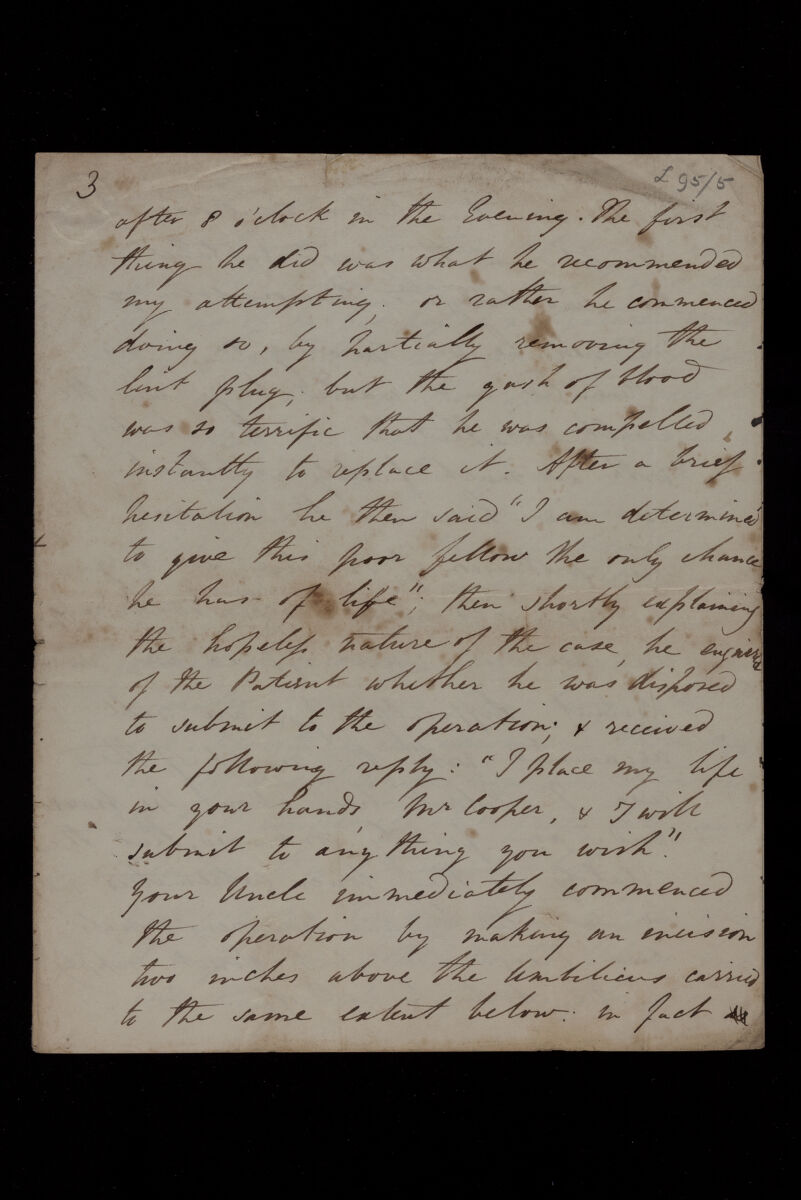 3
L 95/5
after 8 o'clock in the Evening. The first
thing he did was what he recommended
my attempting, or rather he commenced
doing so, by partially removing the
lint plug, but the gush of blood
was so terrific that he was compelled
instantly to replace it. After a brief
hesitation he then said "I am determined
to give this poor fellow the only chance
he has of life"; then shortly explaining
the hopeless nature of the case, he enquired
of the Patient whether he was disposed
to submit to the operation; & received
the following reply: "I place my life
in your hands Mr Cooper, & I will
submit to any thing you wish."
Your Uncle immediately commenced
the operation by making an incision
two inches above the Umbilicus carried
to the same extent below: in fact